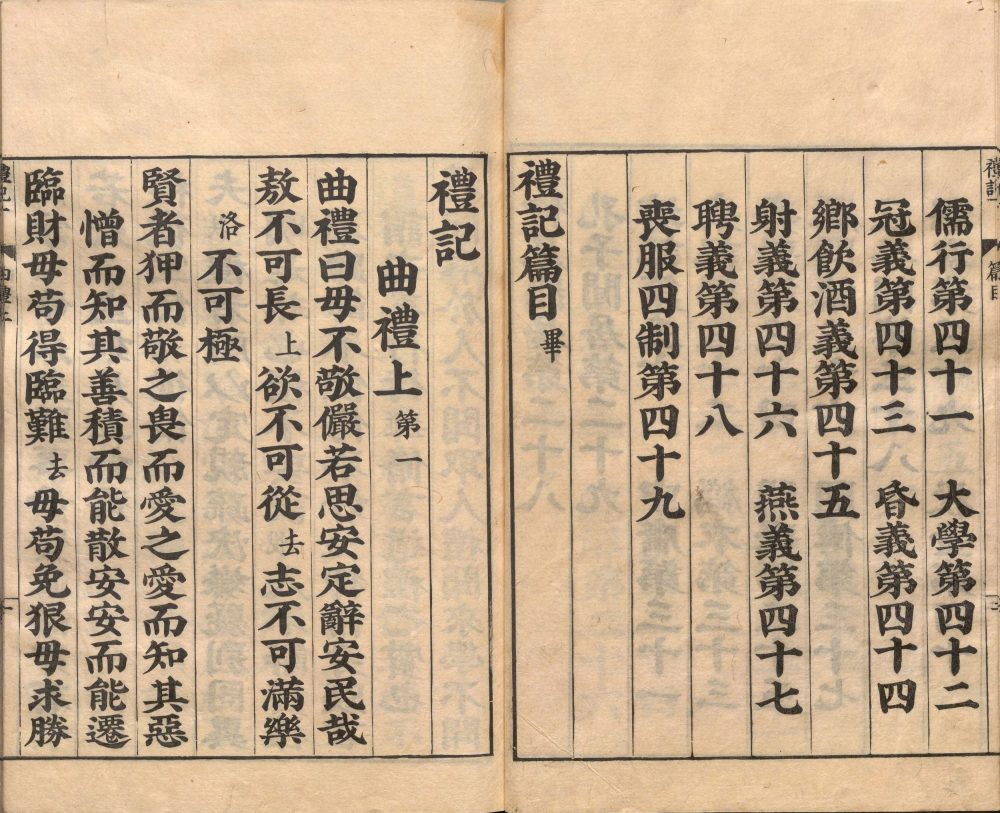 禮記一 篇目
儒行第四十一 大學第四十二
冠義第四十三 昏義第四十四
鄉飲酒義第四十五
射義第四十六 燕義第四十七
聘義第四十八
喪服四制第四十九
禮記篇目 畢
禮記
曲禮上 第一
曲禮曰毋不敬儼若思安定辭安民哉
敖不可長 上 欲不可從 去 志不可滿樂
洛 不可極
賢者狎而敬之畏而愛之愛而知其惡
憎而知其善積而能散安安而能遷
臨財毋苟得臨難 去 毋苟免狠毋求勝
禮記一 曲禮上